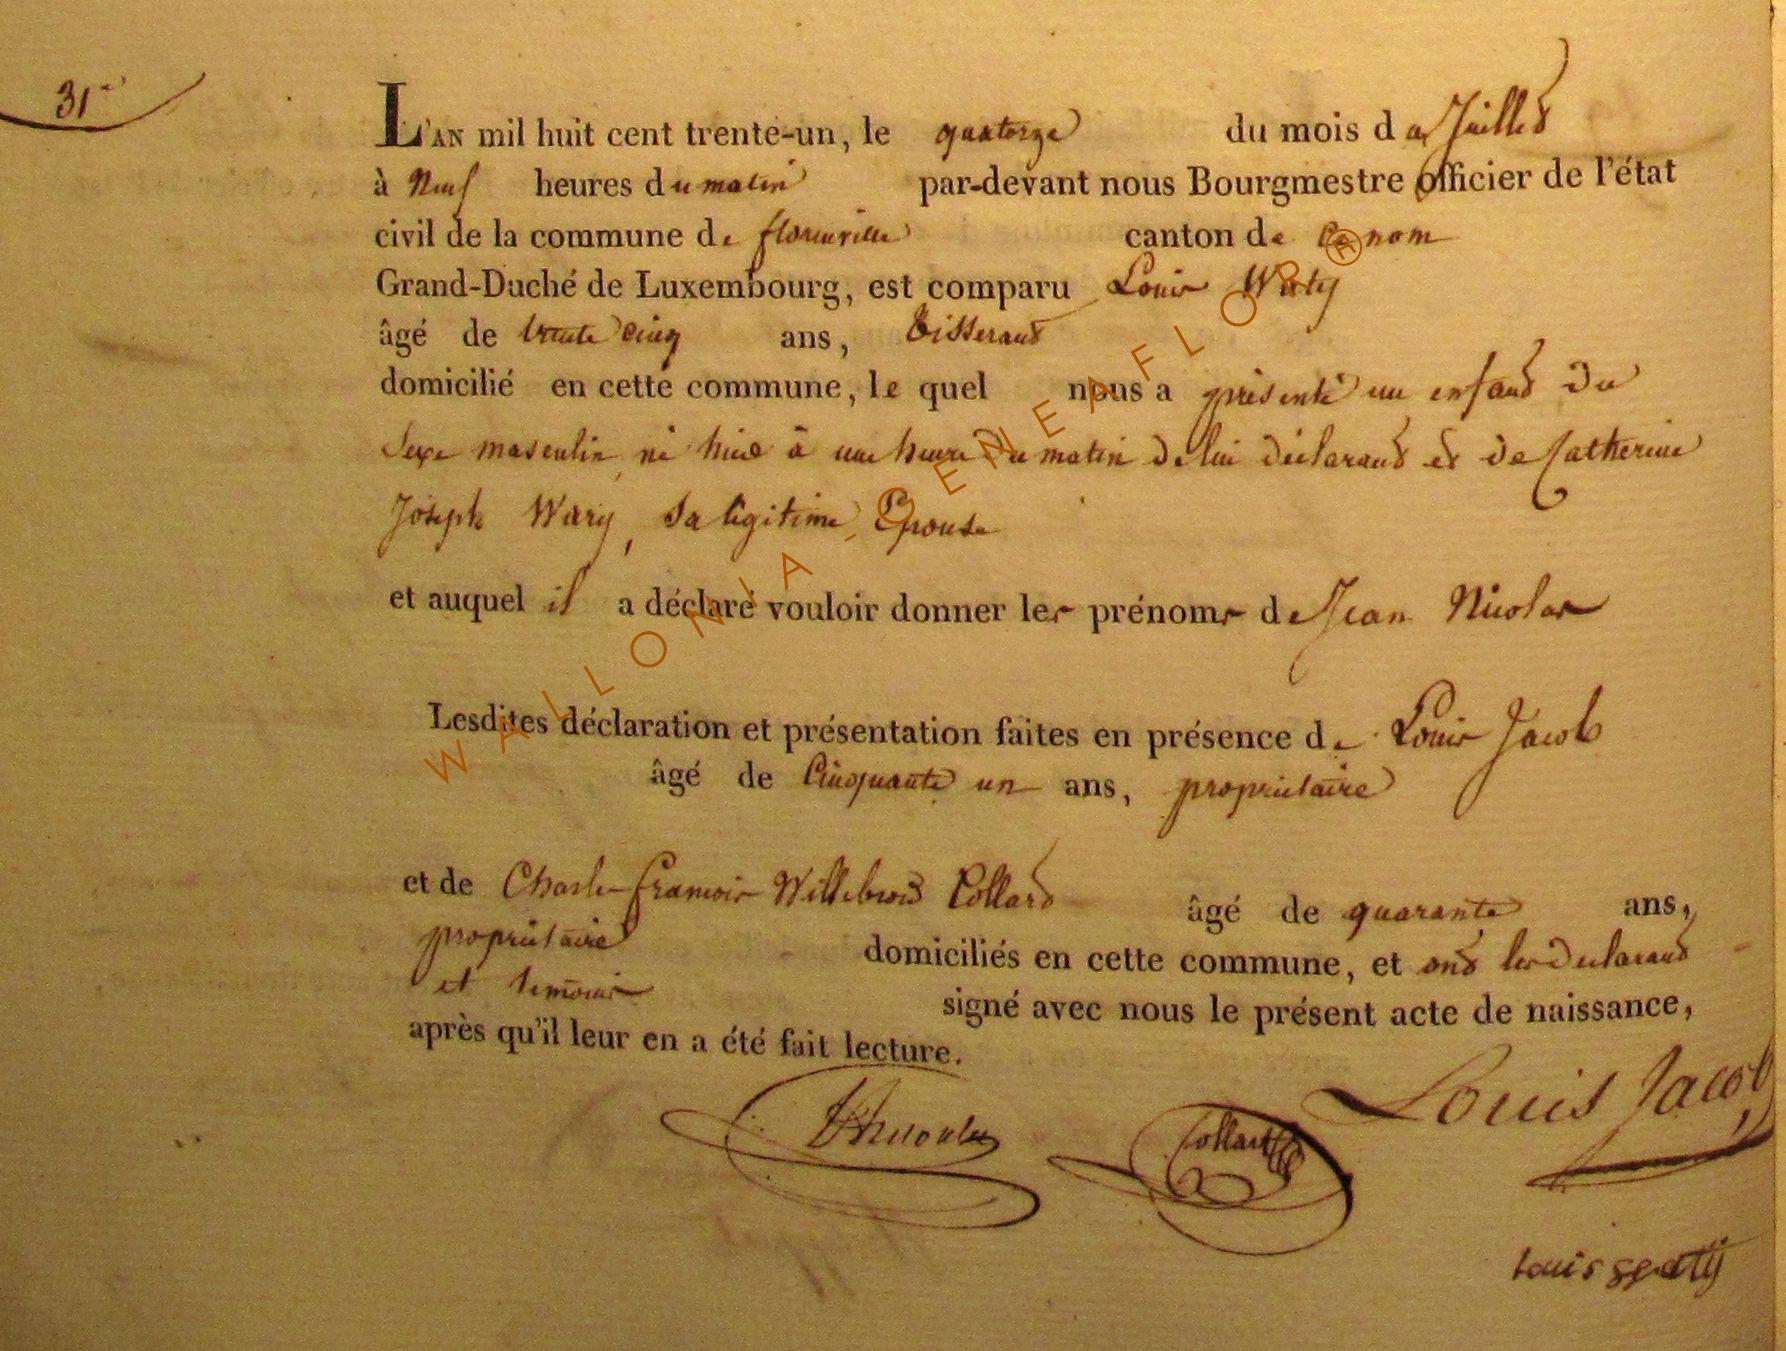 31
L'AN mil huit cent trente-un, le quatorze du mois de Juillet
à neuf heures du matin par-devant nous Bourgmestre officier de l'état
civil de la commune de florenville canton de ce nom
Grand-Duché de Luxembourg, est comparu Louis
âgé de cinq ans, tisserand
domicilié en cette commune, le quel nous a présenté un enfant du
sexe masculin, né hier à une heure du matin de lui déclarant et de Catherine
Joseph Wary, sa légitime Epouse
et auquel il a déclaré vouloir donner les prénoms de Jean Nicolas
Lesdites déclaration et présentation faites en présence de Louis Jacob
âgé de Cinquante un ans, propriétaire
et de Charles françois Willebrord Collard âgé de quarante ans,
propriétaire domiciliés en cette commune, et ont les déclarant
et témoins signé avec nous le présent acte de naissance,
après qu'il leur en a été fait lecture.
Louis Jacob
Collard
Louis
WALLONIA-GENEAFLOR®